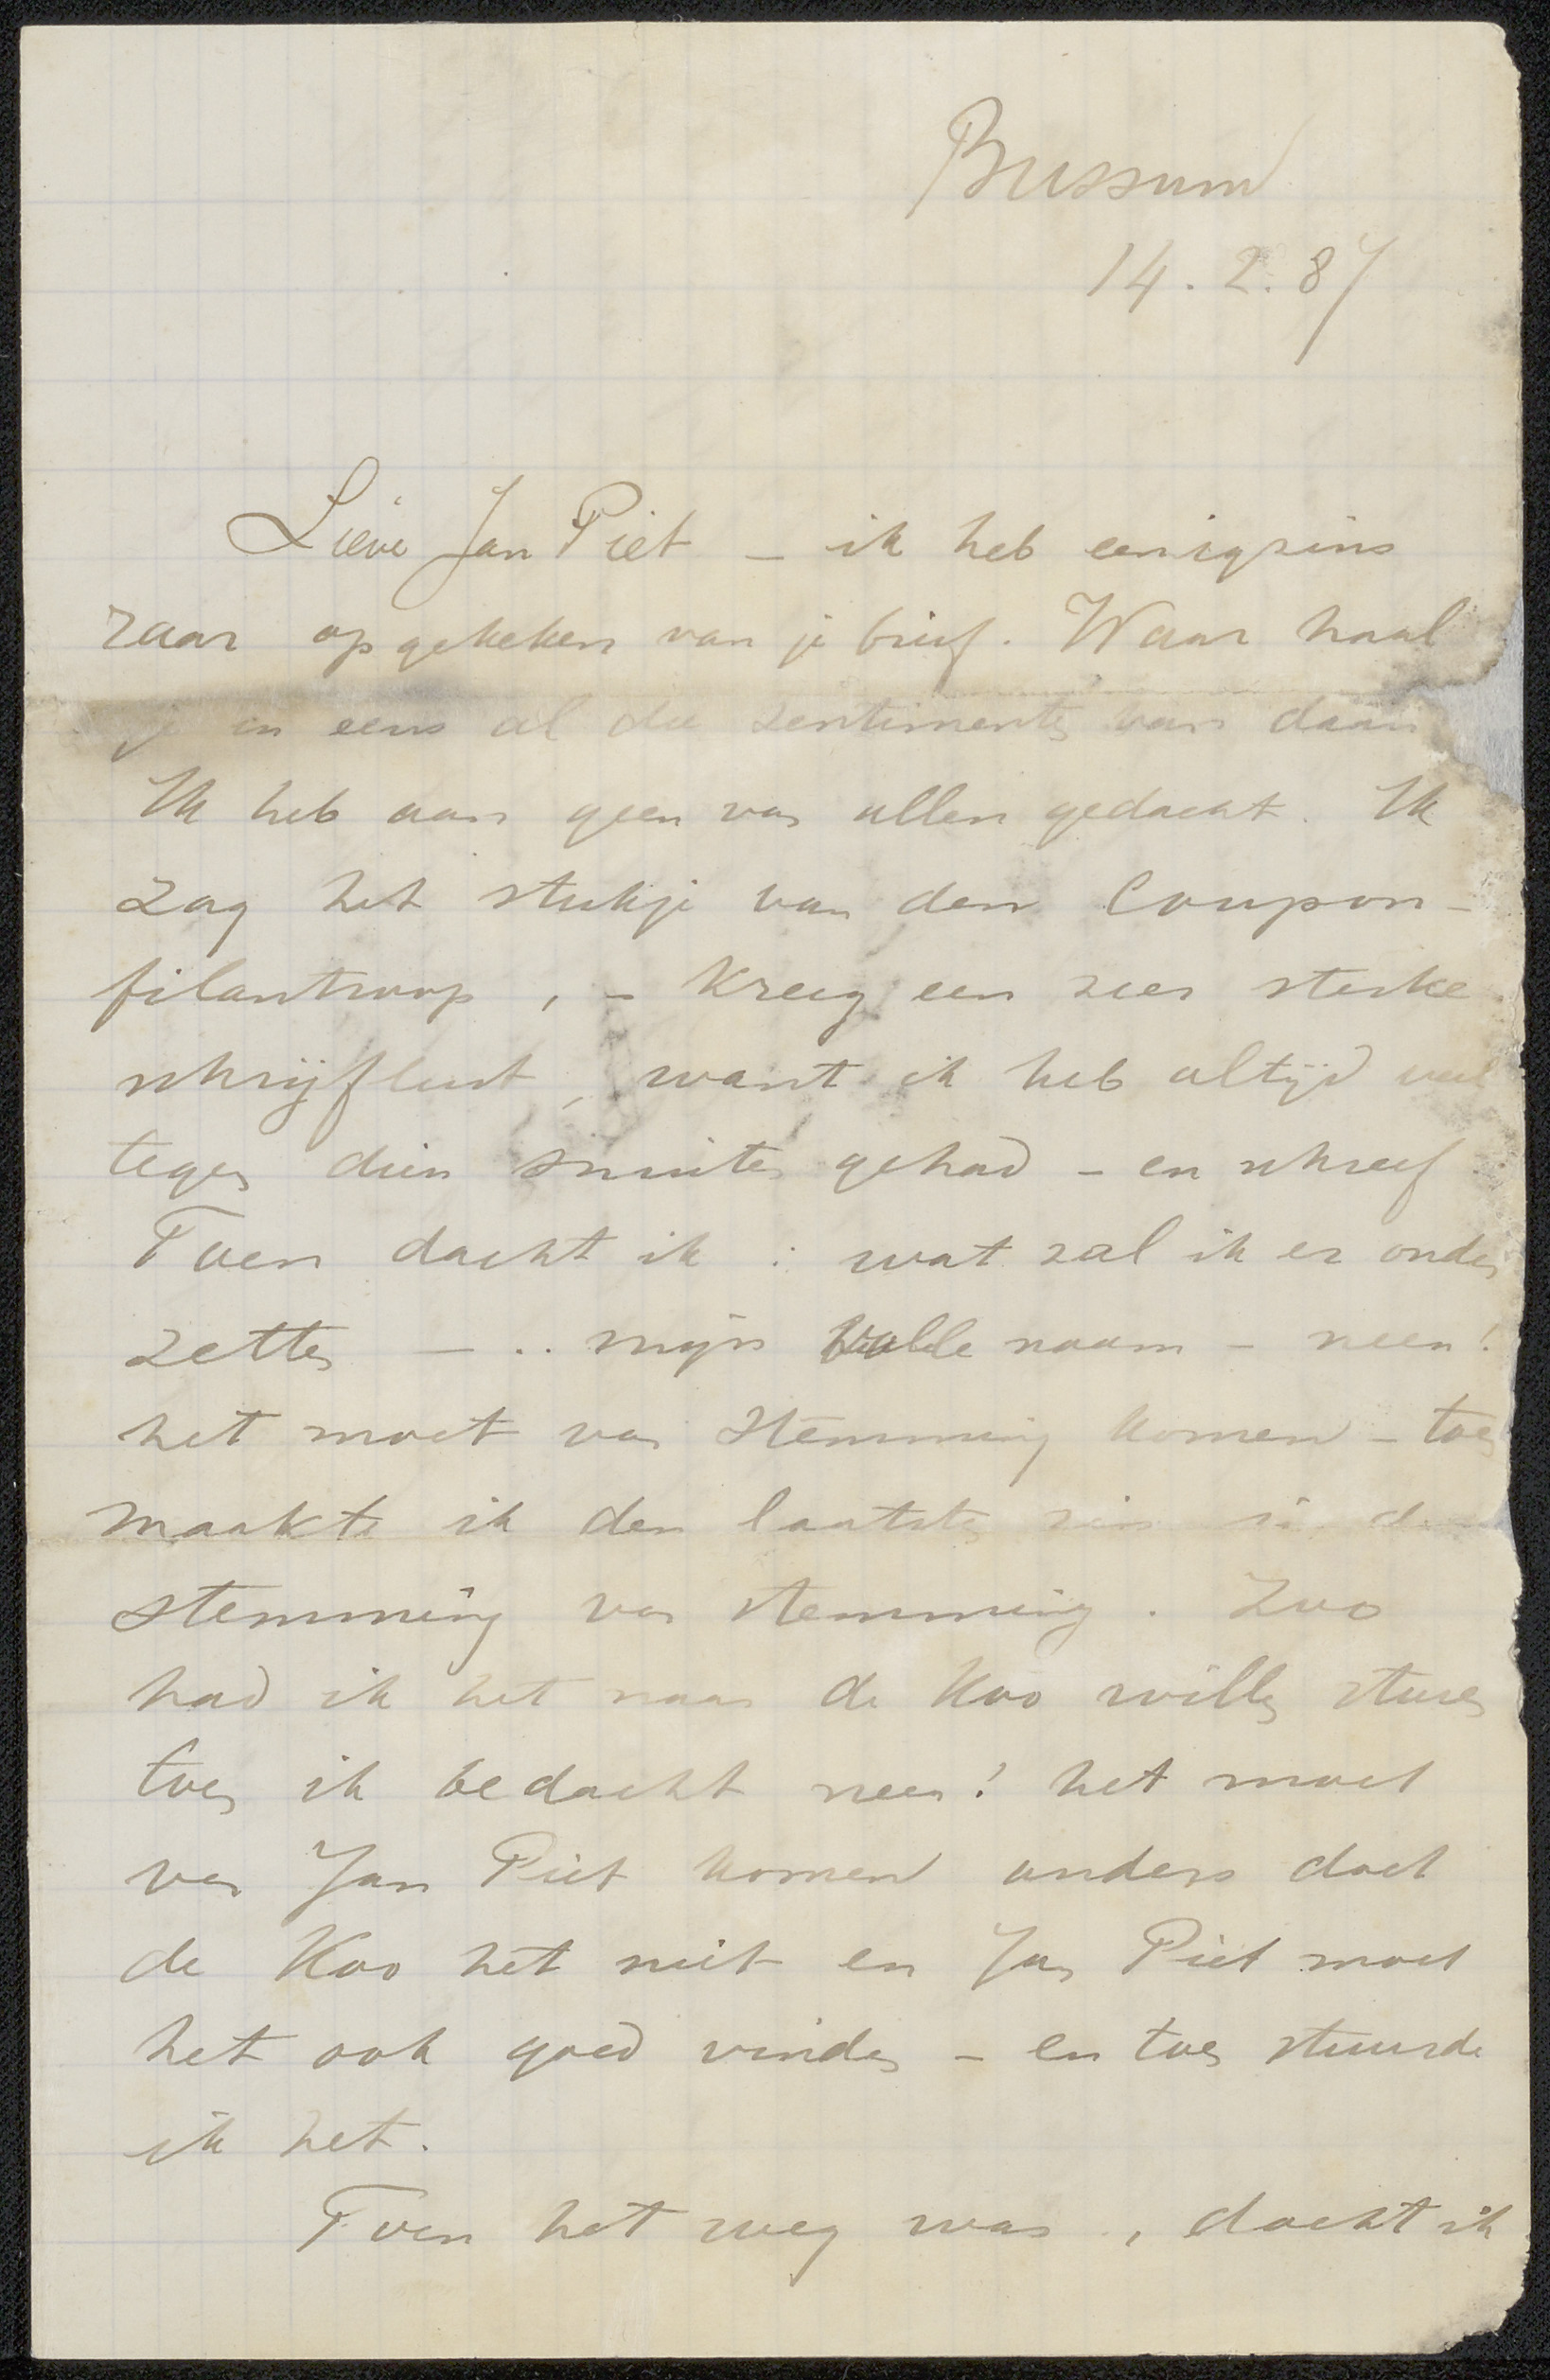 Bussum
14.2.87
Lieve Jan Piet – ik heb eenigzins
raar opgekeken van je brief. Waar haal
je in eens al die sentimenten van daan
Ik heb aan geen van allen gedacht. Ik
zag het stukje van den Coupon-
filantroop, – kreeg een zeer sterke
schrijflust, want ik heb altijd veel
tegen dien snuiter gehad – en schreef
Toen dacht ik : wat zal ik er onder
zetten – .. mijn volle naam – neen!
het moet van Stemming komen – toen
maakte ik den laatsten zin in de
stemming van stemming. Zoo
had ik het naar de Koo willen sturen
toen ik bedacht neen! het moet
van Jan Piet komen anders doet
de Koo het niet en Jan Piet moet
het ook goed vinden – en toen stuurde
ik het.
Toen het weg was, dacht ik